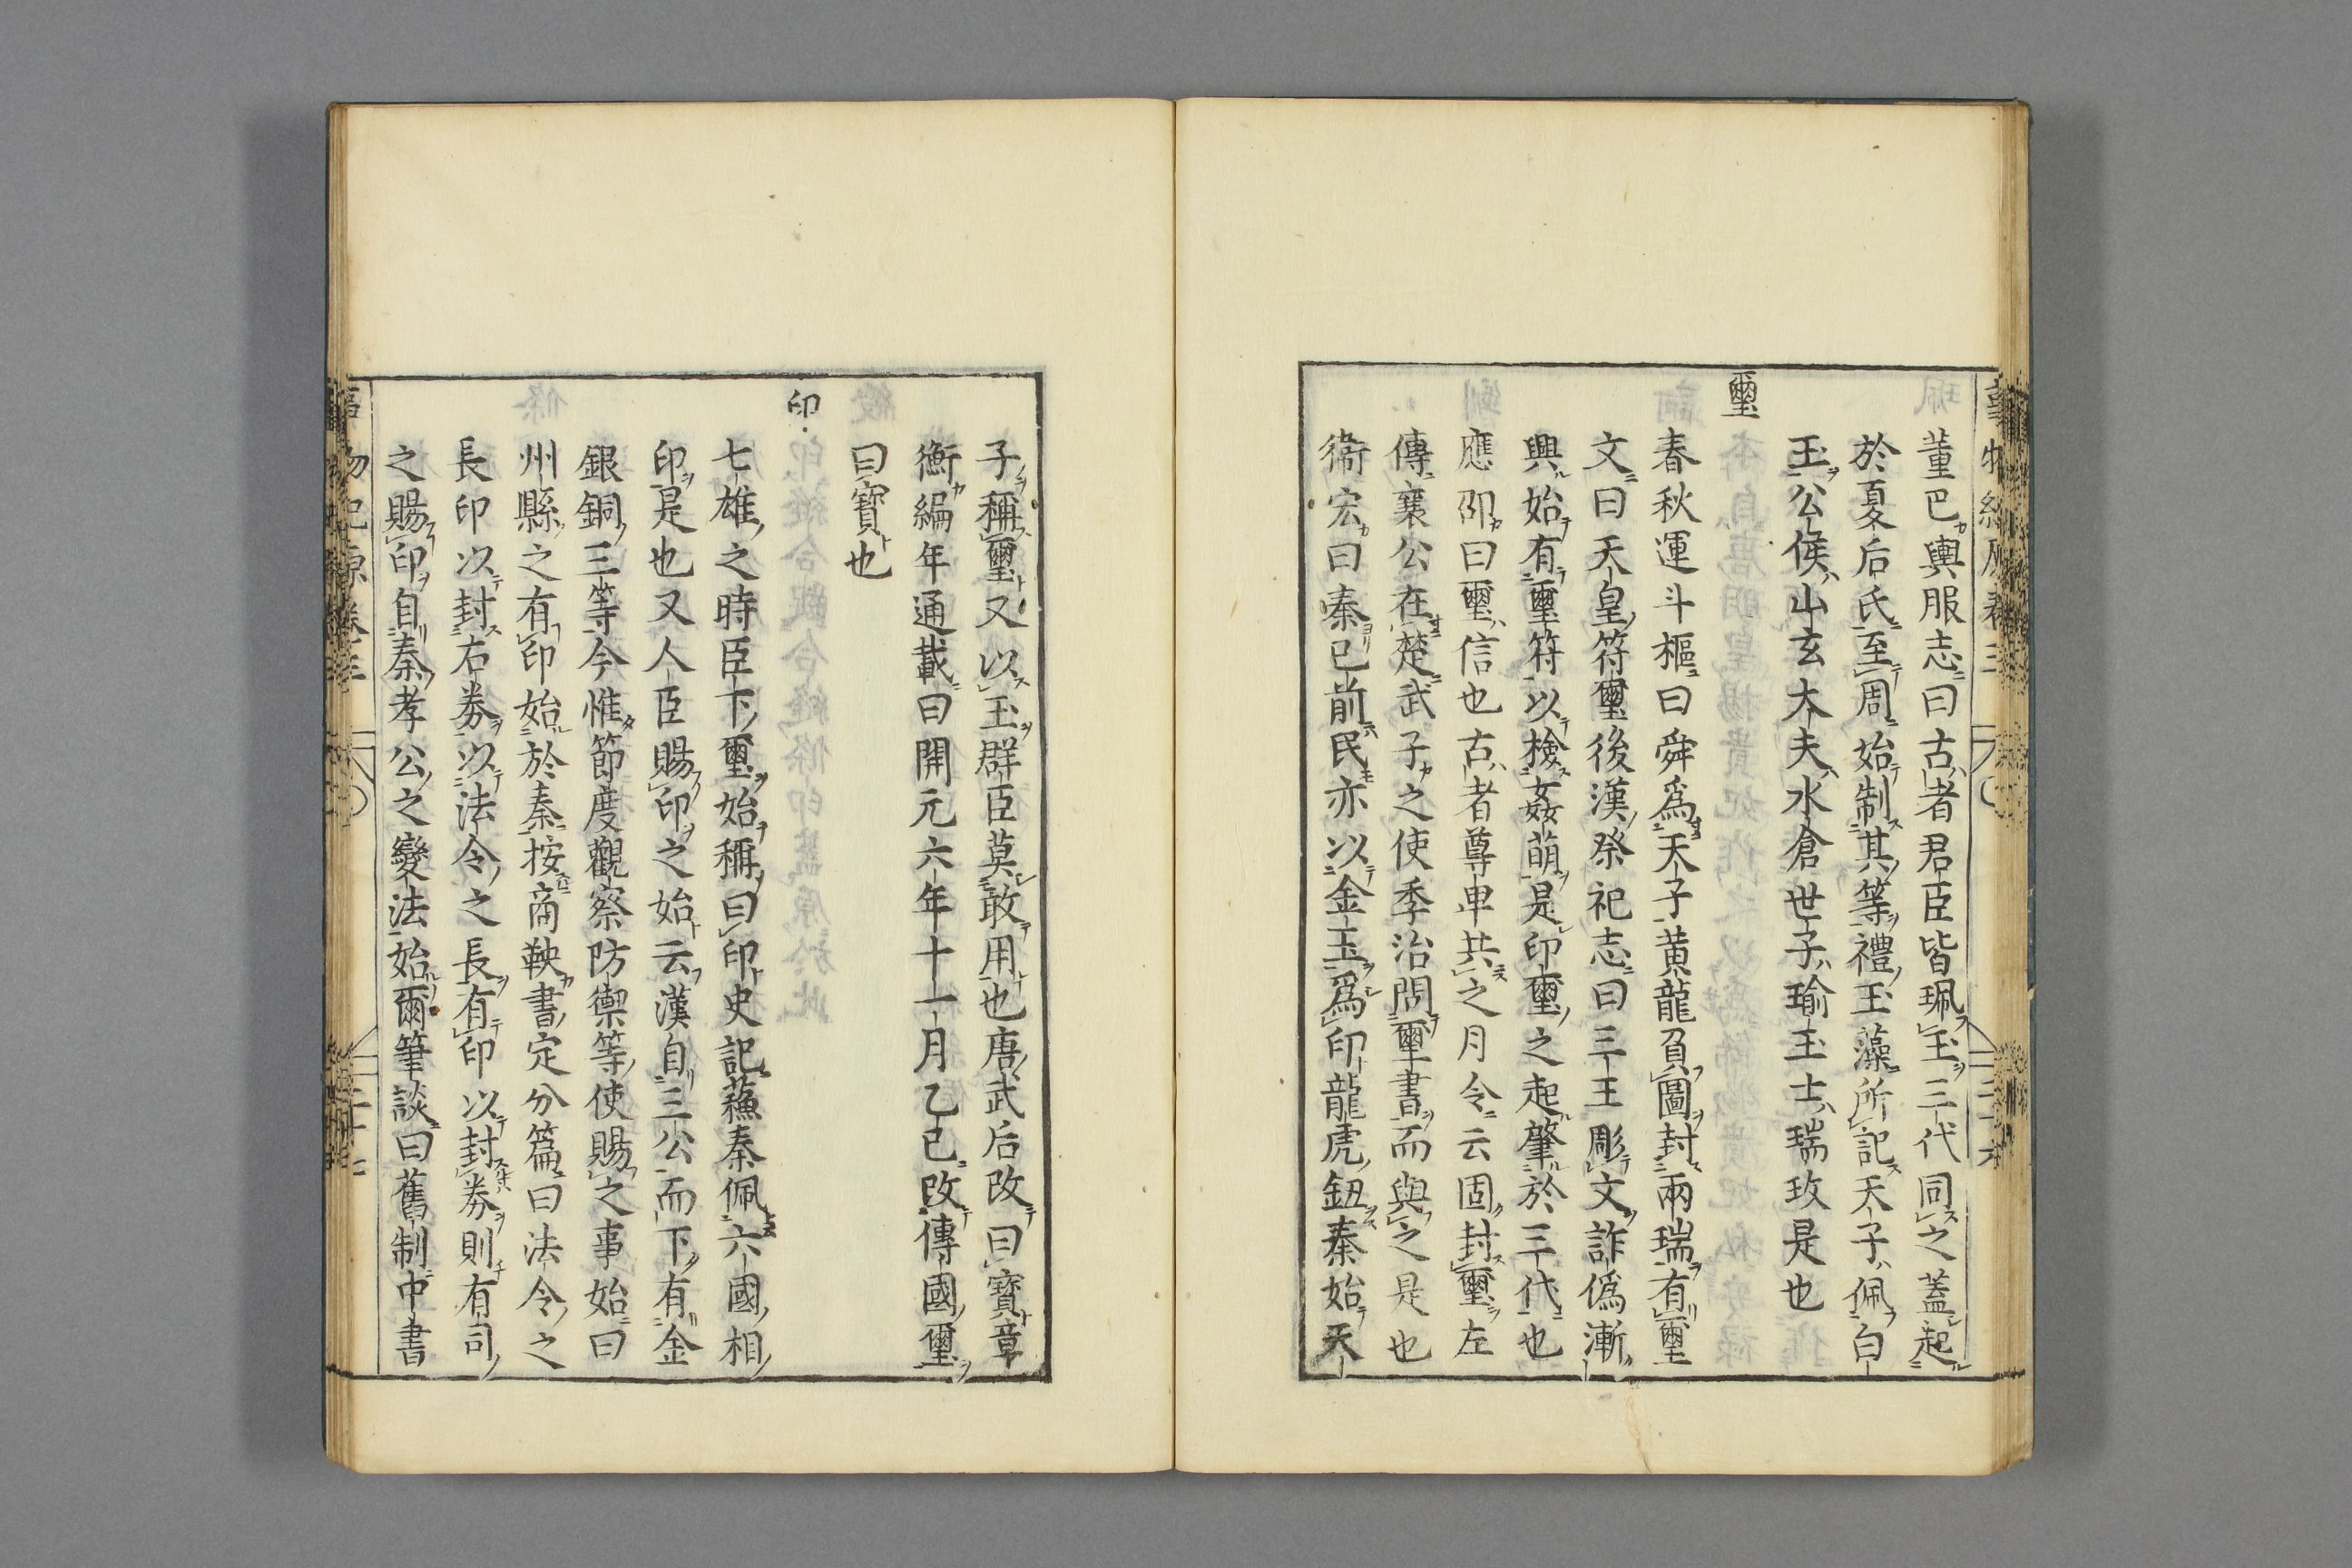 董巴輿服志曰古者君臣皆珮玉三代同之蓋起
於夏后氏至周始制其等禮玉藻所記天子佩白
玉公侯山玄大夫水倉世子瑜玉士瑞玫是也
璽
春秋運斗樞曰舜爲天子黃龍負圖封兩瑞有璽
文曰天皇符璽後漢祭祀志曰三王彫文詐偽漸
興始有璽符以檢姦萌是印璽之起肇於三代也
應邵曰璽信也古者尊卑共之月令云固封璽左
傳襄公在楚武子之使季治問璽書而與之是也
衞宏曰秦已前民亦以金玉爲印龍虎鈕秦始天
子稱璽又以玉群臣莫敢用也唐武后改曰寶章
衡編年通載曰開元六年十一月乙巳改傳國璽
曰寶也
印
七雄之時臣下璽始稱曰印史記蘓秦佩六國相
印是也又人臣賜印之始云漢自三公而下有金
銀銅三等今惟節度觀察防禦等使賜之事始曰
州縣之有印始於秦按商鞅書定分篇曰法令之
長印以封右券以法令之長有印以封券則有司
之賜印自秦孝公之變法始爾筆談曰舊制中書
事物紀原卷三
二十七